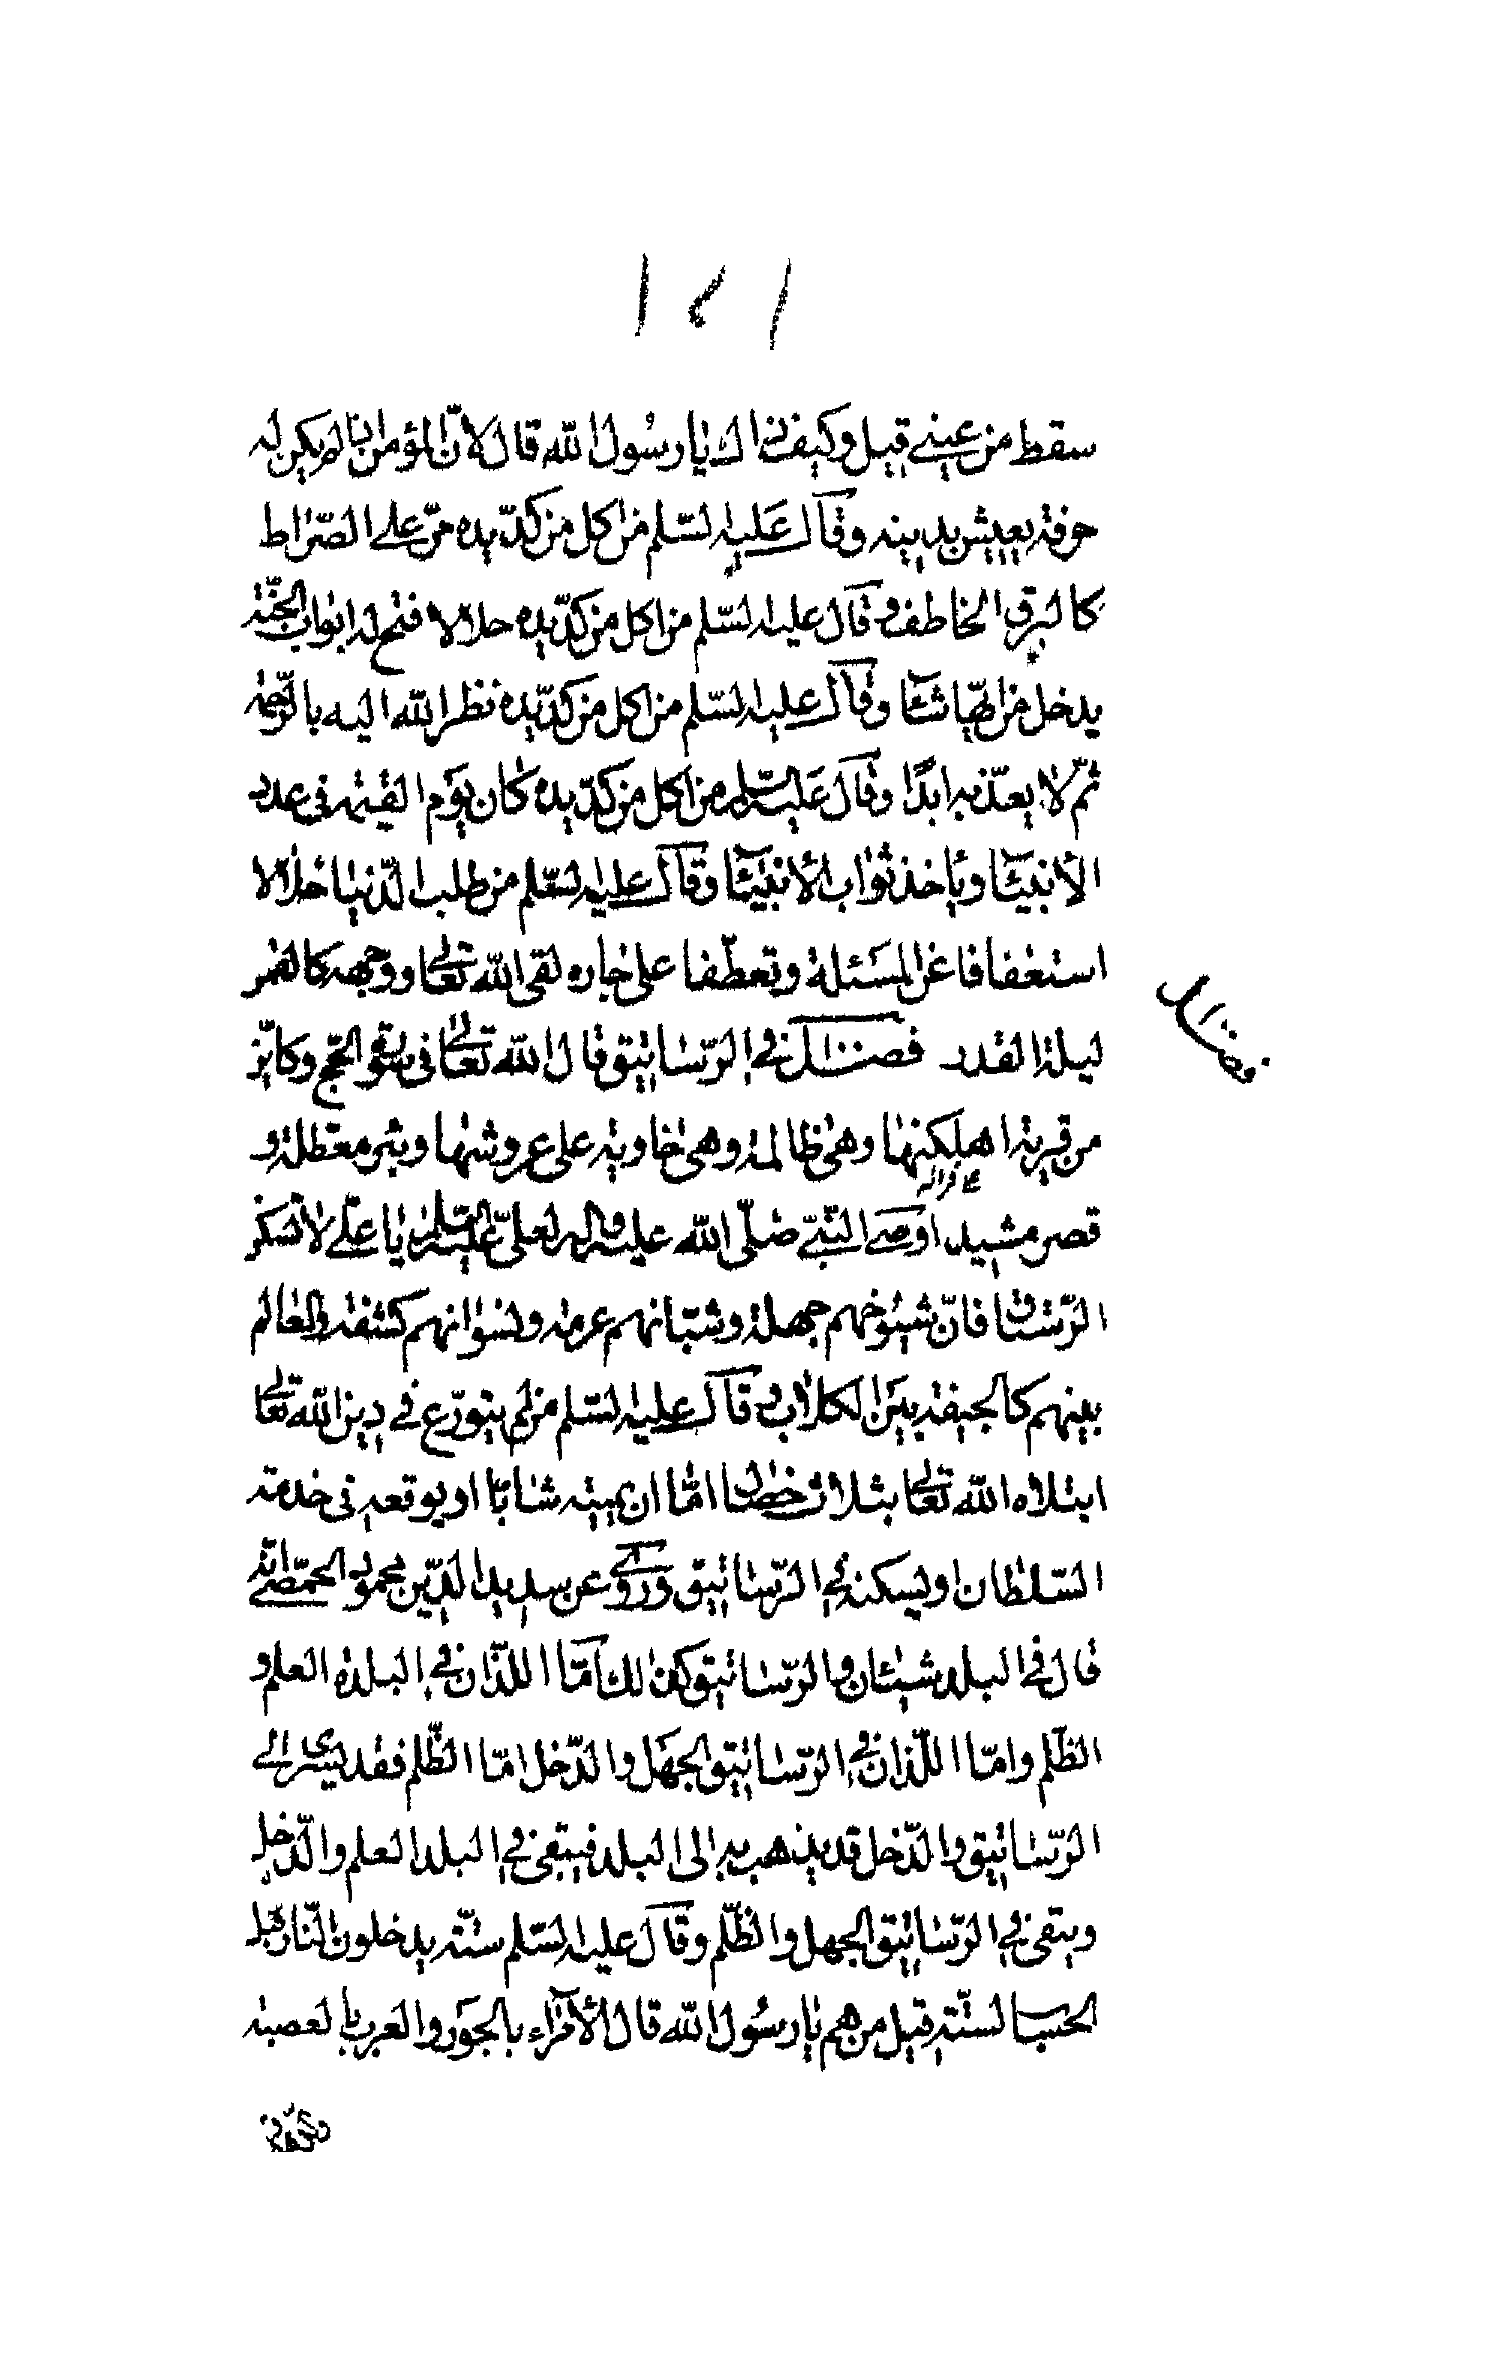 ١٢١
سقط من عيني قيل وكيف ذاك يا رسول الله قال لانّ المؤمن اذا لم يكن له
حرفة يعيش بدينه وقال عليه السّلم من اكل من كدّ يده مرّ على الصّراط
كالبرق الخاطف وقال عليه السّلم من اكل من كدّ يده حلالا فتح له ابواب الجنّة
يدخل من ايّها شآء وقال عليه السّلم من اكل من كدّ يده نظر الله اليه بالرّحمة
ثمّ لا يعذّبه ابدًا وقال عليه السّلم من اكل من كدّ يده كان يوم القيمة في عدد
الأنبيآء وياخذ ثواب الأنبيآء وقال عليه السّلم من طلب الدّنيا حلالا
استعفافا عن المسئلة وتعطّفا على جاره لقى الله تعالى ووجهه كالقمر
ليلة القدر فصل في الرّساتيق قال الله تعالى في سورة الحجّ وكايّن
فصل
من قرية اهلكنها وهى ظالمة وهى خاوية على عروشها وبئر معطّلة و
قصر مشيد اوصى النّبيّ صلّى الله عليه واله لعليّ عليه السّلم يا عليّ لا تسكن
الرّستاق فانّ شيوخهم جهلة وشبّانهم عرمة ونسوانهم كشفة والعالم
بينهم كالجيفة بين الكلاب وقال عليه السّلم من لم يتورّع في دين الله تعالى
ابتلاه الله تعالى بثلاث خصال امّا ان يميته شابّا او يوقعه في خدمة
السّلطان او يسكنه في الرّساتيق وروى عن سديد الدّين محمود الحمّصي انّه
قال في البلد شيئان والرّساتيق كذلك امّا اللّذان في البلدة العلم و
الظّلم وامّا اللّذان في الرّساتيق الجهل والدّخل امّا الظّلم فقد يسرى الى
الرّساتيق والدّخل قد يذهب به الى البلد فيبقى في البلد العلم والدّخل
ويبقى في الرّساتيق الجهل والظّلم وقال عليه السّلم ستّة يدخلون النّار قبل
الحساب لستّة قيل من هم يا رسول الله قال الأمرآء بالجور والعرب بالعصبية